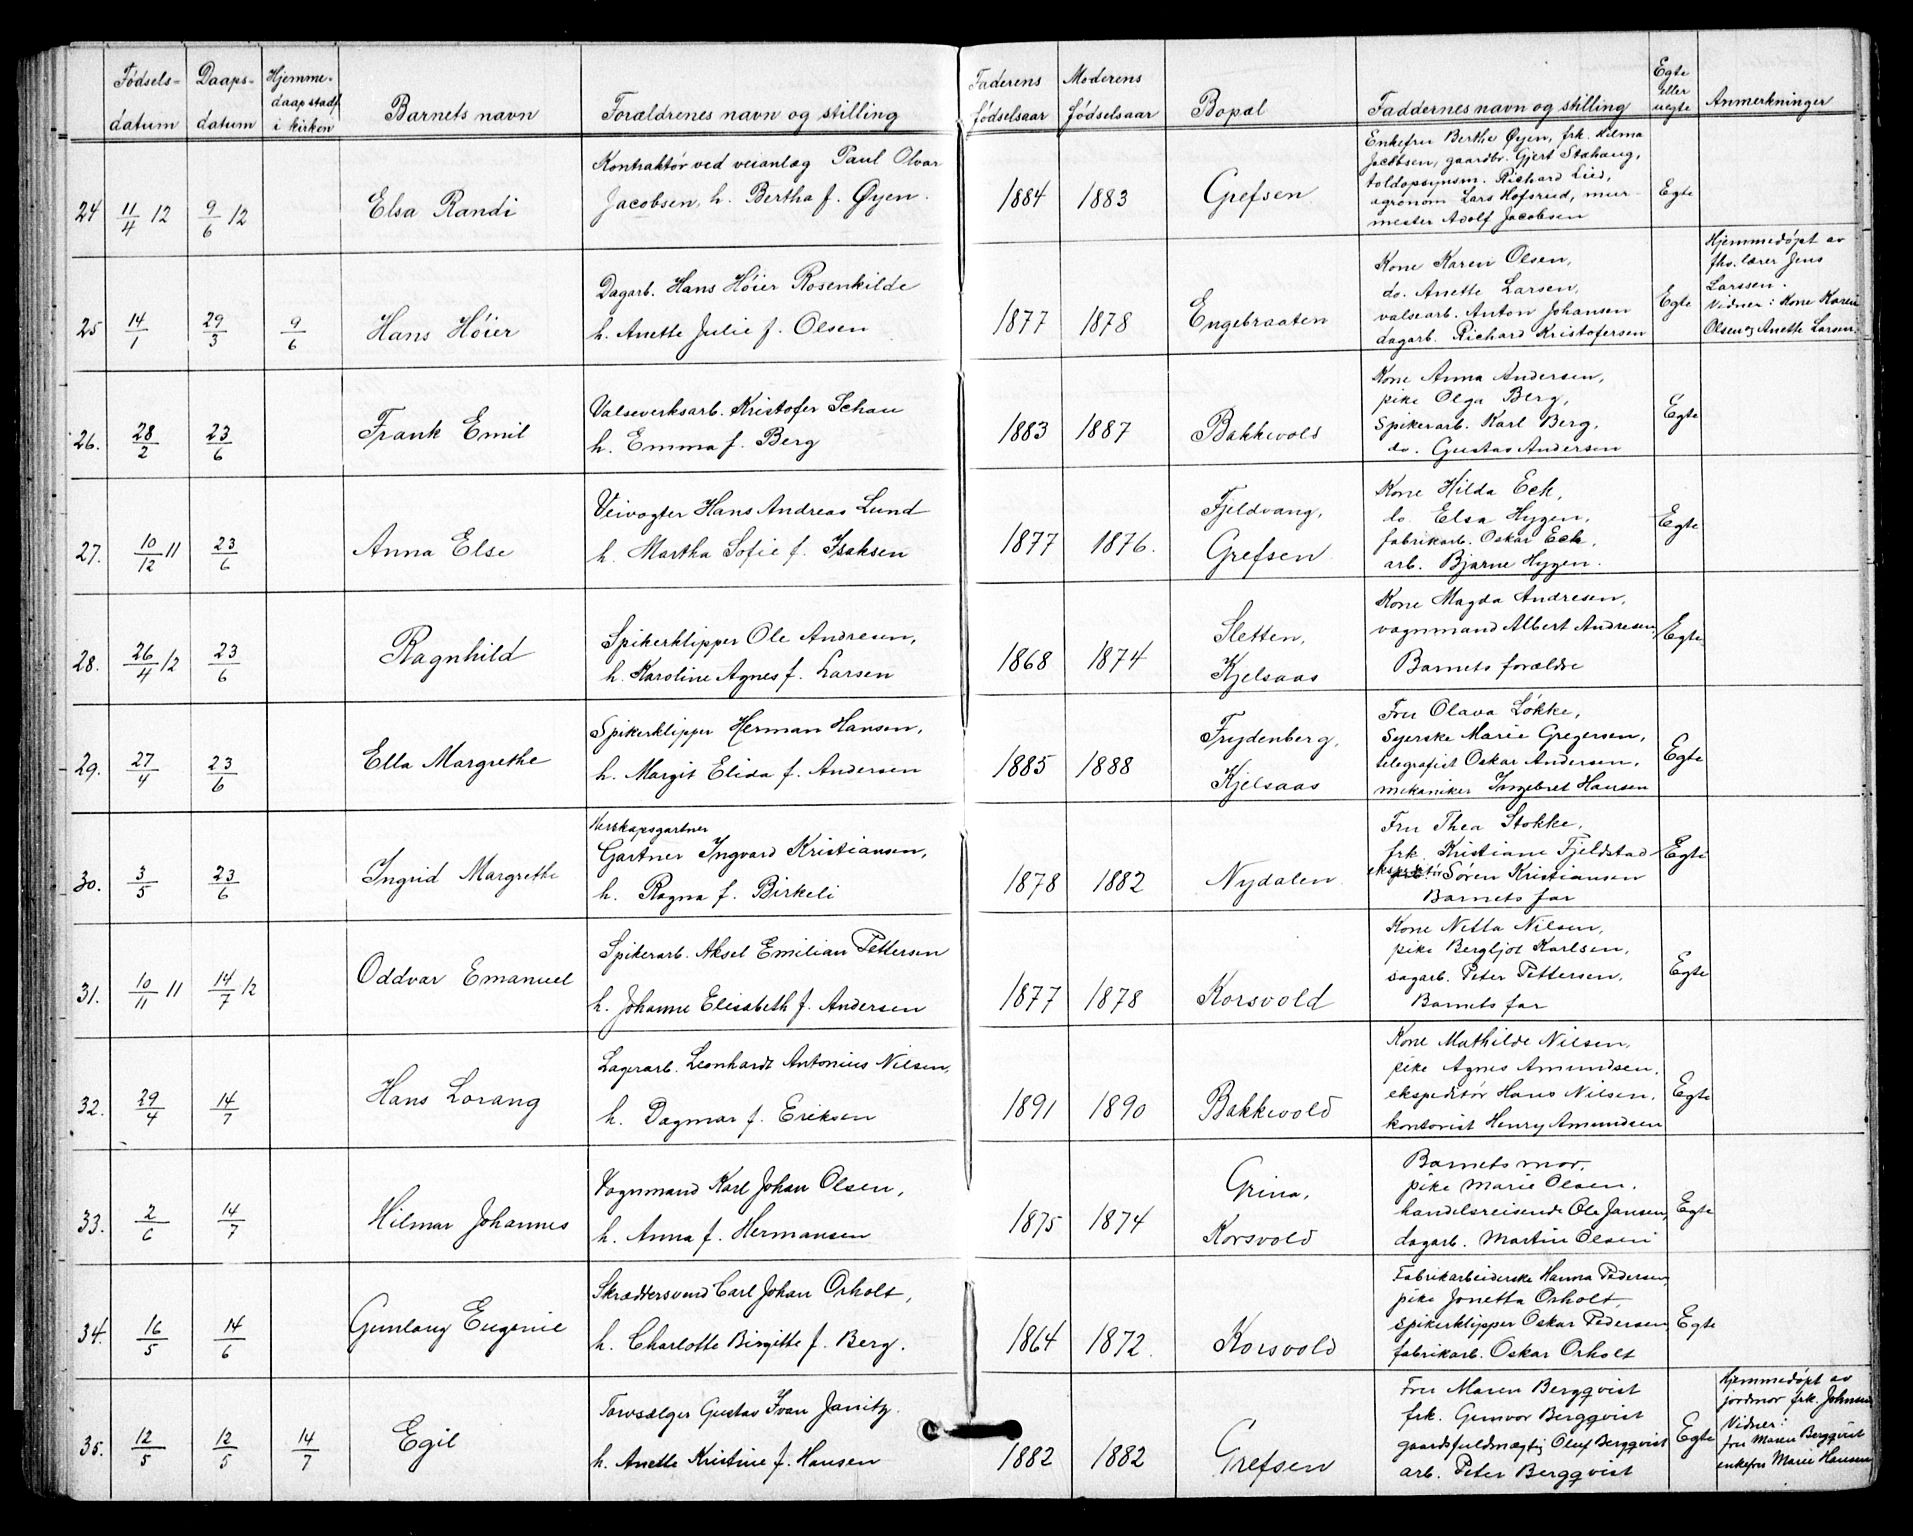 Fødsels- datum | Daaps- datum | Hjemme- daap stadf. i kirken | Barnets navn | Forældrenes navn og stilling | Faderens fødselsaar | Moderens fødselsaar | Bopæl | Faddernes navn og stilling | Egte eller uegte | Anmerkninger
24 | 11/4 12 | 9/6 12 | Elsa Randi | 1884 | 1883 | Grefsen | Egte
Kontraktør ved veianlæg Paul Olvar
Jacobsen, h. Bertha f. Øyen.
Enkefru Berthe Øyen, frk. Vilma
Jacobsen, gaardbr. Gjert Stahaug,
toldopsynsm. Richard Lied,
agronom Lars Hofsrud, mur-
mester Adolf Jacobsen
25 | 14/1 | 29/3 | 9/6 | Hans Höier | 1877 | 1878 | Engebraaten | Egte
Dagarb. Hans Höier Rosenkilde
h. Anette Julie f. Olsen
Kone Karen Olsen,
do. Anette Larsen,
valsearb. Anton Johansen
dagarb. Richard Kristofersen
Hjemmedöpt av
fhv. lærer Jens
Larssen.
Vidner: Kone Karen
Olsen og Anette Larsen.
26. | 28/2 | 23/6 | Frank Emil | 1883 | 1887 | Bakkevold | Egte
Valseverksarb. Kristofer Schau
h. Emma f. Berg
Kone Anna Andersen,
pike Olga Berg,
Spikerarb. Karl Berg,
do. Gustav Andersen
27. | 10/12 11 | 23/6 | Anna Else | 1877 | 1876. | Fjeldvang, Grefsen | Egte
Veivogter Hans Andreas Lund
h. Martha Sofie f. Isaksen
Kone Hilda Eek,
do Elsa Hygen,
fabrikarb. Oskar Eek,
arb. Bjarne Hygen.
28. | 26/4 12 | 23/6 | Ragnhild | 1868 | 1874 | Sletten, Kjelsaas | Egte
Spikerklipper Ole Andresen,
h. Karoline Agnes f. Larsen
Kone Magda Andresen,
vognmand Albert Andresen,
Barnets forældre
29. | 27/4 | 23/6 | Ella Margrethe | 1885 | 1888 | Frydenberg, Kjelsaas | Egte
Spikerklipper Herman Hansen,
h. Margit Elida f. Andersen
Fru Olava Løkke,
Syerske Marie Gregersen,
telegrafist Oskar Andersen,
mekaniker Ingebret Hansen
30. | 3/5 | 23/6 | Ingrid Margrethe | 1878 | 1882 | Nydalen | Egte
Herskapsgartner
Gartner Ingvard Kristiansen,
h. Ragna f. Birkeli
Fru Thea Stokke,
frk. Kristiane Fjeldstad
ekspeditør Søren Kristiansen
Barnets far
31. | 10/11 11 | 14/7 12 | Oddvar Emanuel | 1877 | 1878 | Korsvold | Egte
Spikerarb. Aksel Emilian Pettersen
h. Johanne Elisabeth f. Andersen
Kone Netta Nilsen,
pike Bergljot Karlsen,
sagarb. Peter Pettersen,
Barnets far
32. | 29/4 | 14/7 | Hans Lorang | 1891 | 1890 | Bakkevold | Egte
Lagerarb. Leonhardt Antonius Nilsen,
h. Dagmar f. Eriksen
Kone Mathilde Nilsen,
pike Agnes Amundsen,
ekspeditör Hans Nilsen,
kontorist Henry Amundsen
33. | 2/6 | 14/7 | Hilmar Johannes | 1875 | 1874 | Grina, Korsvold | Egte
Vognmand Karl Johan Olsen,
h. Anna f. Hermansen
Barnets mor,
pike Marie Olsen,
handelsreisende Ole Jansen,
dagarb. Martin Olsen
34. | 16/5 | 14/6 | Gunlaug Eugenie | 1864 | 1872. | Korsvold | Egte
Skræddersvend Carl Johan Orholt,
h. Charlotte Birgitte f. Berg.
Fabrikarbeiderske Hanna Pedersen,
pike Jonetta Orholt,
spikerklipper Oskar Pedersen,
fabrikarb. Oskar Orholt
35. | 12/5 | 12/5 | 14/7 | Egil | 1882 | 1882 | Grefsen | Egte
Torvsælger Gustav Ivan Janitz.
h. Anette Kristine f. Hansen
Fru Maren Bergqvist
frk. Gunvor Bergqvist
gaardsfuldmægtig Oluf Bergqvist
arb. Peter Bergqvist
Hjemmedöpt av
jordmor frk. Johnsen
Vidner:
fru Maren Bergqvist
enkefru Marie Hansen